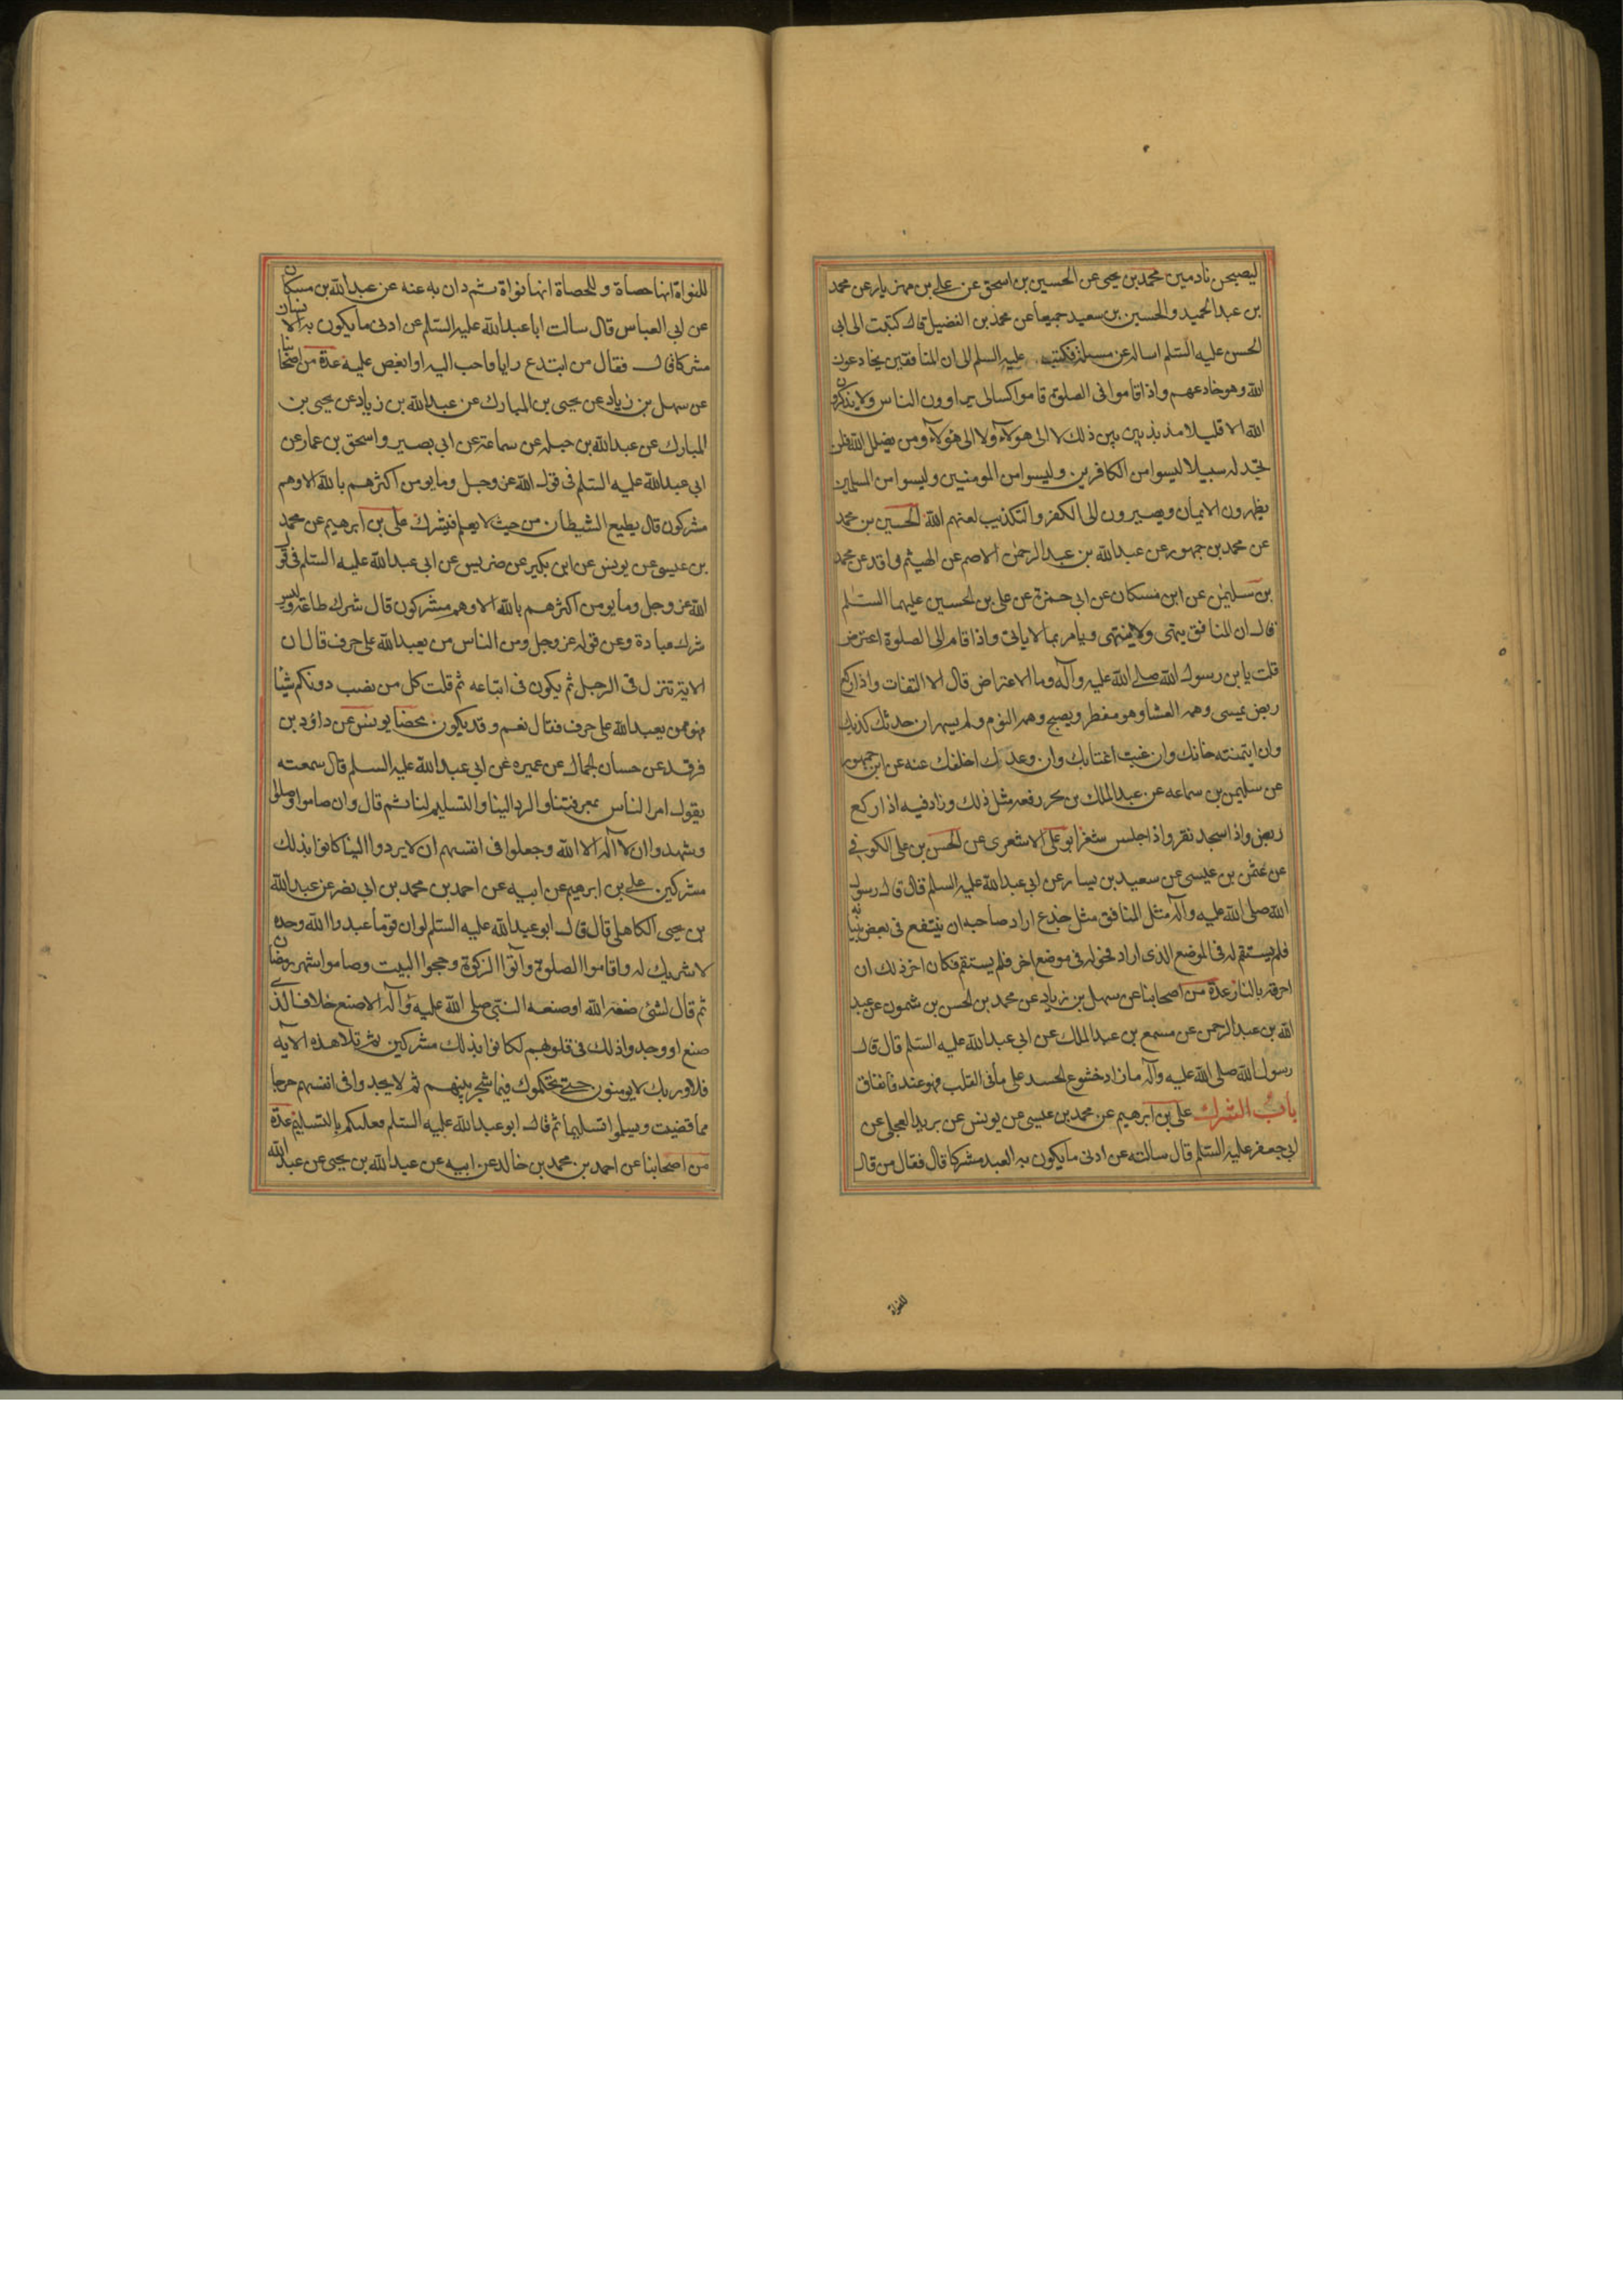 ليصبحن نادمين محمد بن يحيى عن الحسين بن اسحق عن علي بن مهزيار عن محمد
بن عبد الحميد والحسين بن سعيد جميعا عن محمد بن الفضيل قال كتبت الى ابى
الحسن عليه السلم اساله عن مسئلة فكتب عليه السلم الى ان المنافقين يخادعون
الله وهو خادعهم واذا قاموا فى الصلوة قاموا كسالى يراوون الناس ولا يذكرون
الله الا قليلا مذبذبين بين ذلك لا الى هولاء ولا الى هولاء ومن يضلل الله فلن
تجد له سبيلا ليسوا من الكافرين وليسوا من المومنين وليسوا من المسلمين
يظهرون الايمان ويصيرون الى الكفر والتكذيب لعنهم الله الحسين بن محمد
عن محمد بن جمهور عن عبد الله بن عبد الرحمن الاصم عن الهيثم واقد عن محمد
بن سليمن عن ابن مسكان عن ابى حمزة عن على بن الحسين عليهما السلم
قال ان المنافق ينهى ولا ينتهى ويامر بما لا ياتى واذا قام الى الصلوة اعترض
قلت يا بن رسول الله صلى الله عليه وآله وما الاعتراض قال الالتفات واذا ركع
ربض يمسى وهمه العشا وهو مفطر ويصبح وهمه النوم ولم يسهر ان حدثك كذبك
وان ايتمنته خانك وان غبت اغتابك وان وعدك اخلفك عنه عن ابن جمهور
عن سليمن بن سماعه عن عبد الملك بن بحر رفعه مثل ذلك وزاد فيه اذا ركع
ربض واذا سجد نقر واذا جلس شغر ابو على الاشعرى عن الحسن بن على الكوفى
عن عثمن بن عيسى عن سعيد بن يسار عن ابى عبد الله عليه السلم قال قال رسول
الله صلى الله عليه وآله مثل المنافق مثل جذع اراد صاحبه ان ينتفع فى بعض بنيانه
فلم يستقم له فى الموضع الذى اراد فحوله فى موضع اخر فلم يستقم فكان اخر ذلك ان
احرقه بالنار عدة من اصحابنا عن سهل بن زياد عن محمد بن الحسن بن شمون عن عبد
الله بن عبد الرحمن عن مسمع بن عبد الملك عن ابى عبد الله عليه السلم قال قال
رسول الله صلى الله عليه وآله ما زاد خشوع الجسد على ما فى القلب فهو عندنا نفاق
باب الشرك على بن ابرهيم عن محمد بن عيسى عن يونس عن بريد العجلى عن
ابى جعفر عليه السلم قال سالته عن ادنى ما يكون به العبد مشركا قال فقال من قال
للنواة
للنواة انها حصاة وللحصاة انها نواة ثم دان به عنه عن عبد الله بن مسكان
عن ابى العباس قال سالت ابا عبد الله عليه السلم عن ادنى ما يكون به الانسان
مشركا قال فقال من ابتدع رايا فاحب اليه او ابغض عليه عدة من اصحابنا
عن سهل بن زياد عن يحيى بن المبارك عن عبد الله بن زياد عن يحيى بن
المبارك عن عبد الله بن جبله عن سماعة عن ابى بصير واسحق بن عمار عن
ابى عبد الله عليه السلم فى قول الله عز وجل وما يومن اكثرهم بالله الا وهم
مشركون قال يطيع الشيطان من حيث لا يعلم فيشرك على بن ابرهيم عن محمد
بن عيسى عن يونس عن ابن بكير عن ضريس عن ابى عبد الله عليه السلم فى قول
الله عز وجل وما يومن اكثرهم بالله الا وهم مشركون قال شرك طاعة وليس
شرك عبادة وعن قوله عز وجل ومن الناس من يعبد الله على حرف قال ان
الاية تنزل فى الرجل ثم يكون فى اتباعه ثم قلت كل من نصب دونكم شيئا
فهو ممن يعبد الله على حرف فقال نعم وقد يكون محضا يونس عن داؤد بن
فرقد عن حسان الجمال عن عميره عن ابى عبد الله عليه السلم قال سمعته
يقول امر الناس بمعرفتنا والرد الينا والتسليم لنا ثم قال وان صاموا وصلوا
وشهدوا ان لا آله الا الله وجعلوا فى انفسهم ان لا يردوا الينا كانوا بذلك
مشركين على بن ابرهيم عن ابيه عن احمد بن محمد بن ابى نصر عن عبد الله
بن يحيى الكاهلى قال قال ابو عبد الله عليه السلم لو ان قوما عبدوا الله وحده
لا شريك له واقاموا الصلوة وآتوا الزكوة وحجوا البيت وصاموا شهر رمضان
ثم قال لشئ صنعه الله او صنعه النبى صلى الله عليه وآله الا صنع خلاف الذى
صنع او وجدوا ذلك فى قلوبهم لكانوا بذلك مشركين ثم تلا هذه الآيه
فلا وربك لا يومنون حتى يحكموك فيما شجر بينهم ثم لا يجدوا فى انفسهم حرجا
مما قضيت ويسلموا تسليما ثم قال ابو عبد الله عليه السلم فعليكم بالتسليم عدة
من اصحابنا عن احمد بن محمد بن خالد عن ابيه عن عبد الله بن يحيى عن عبد الله